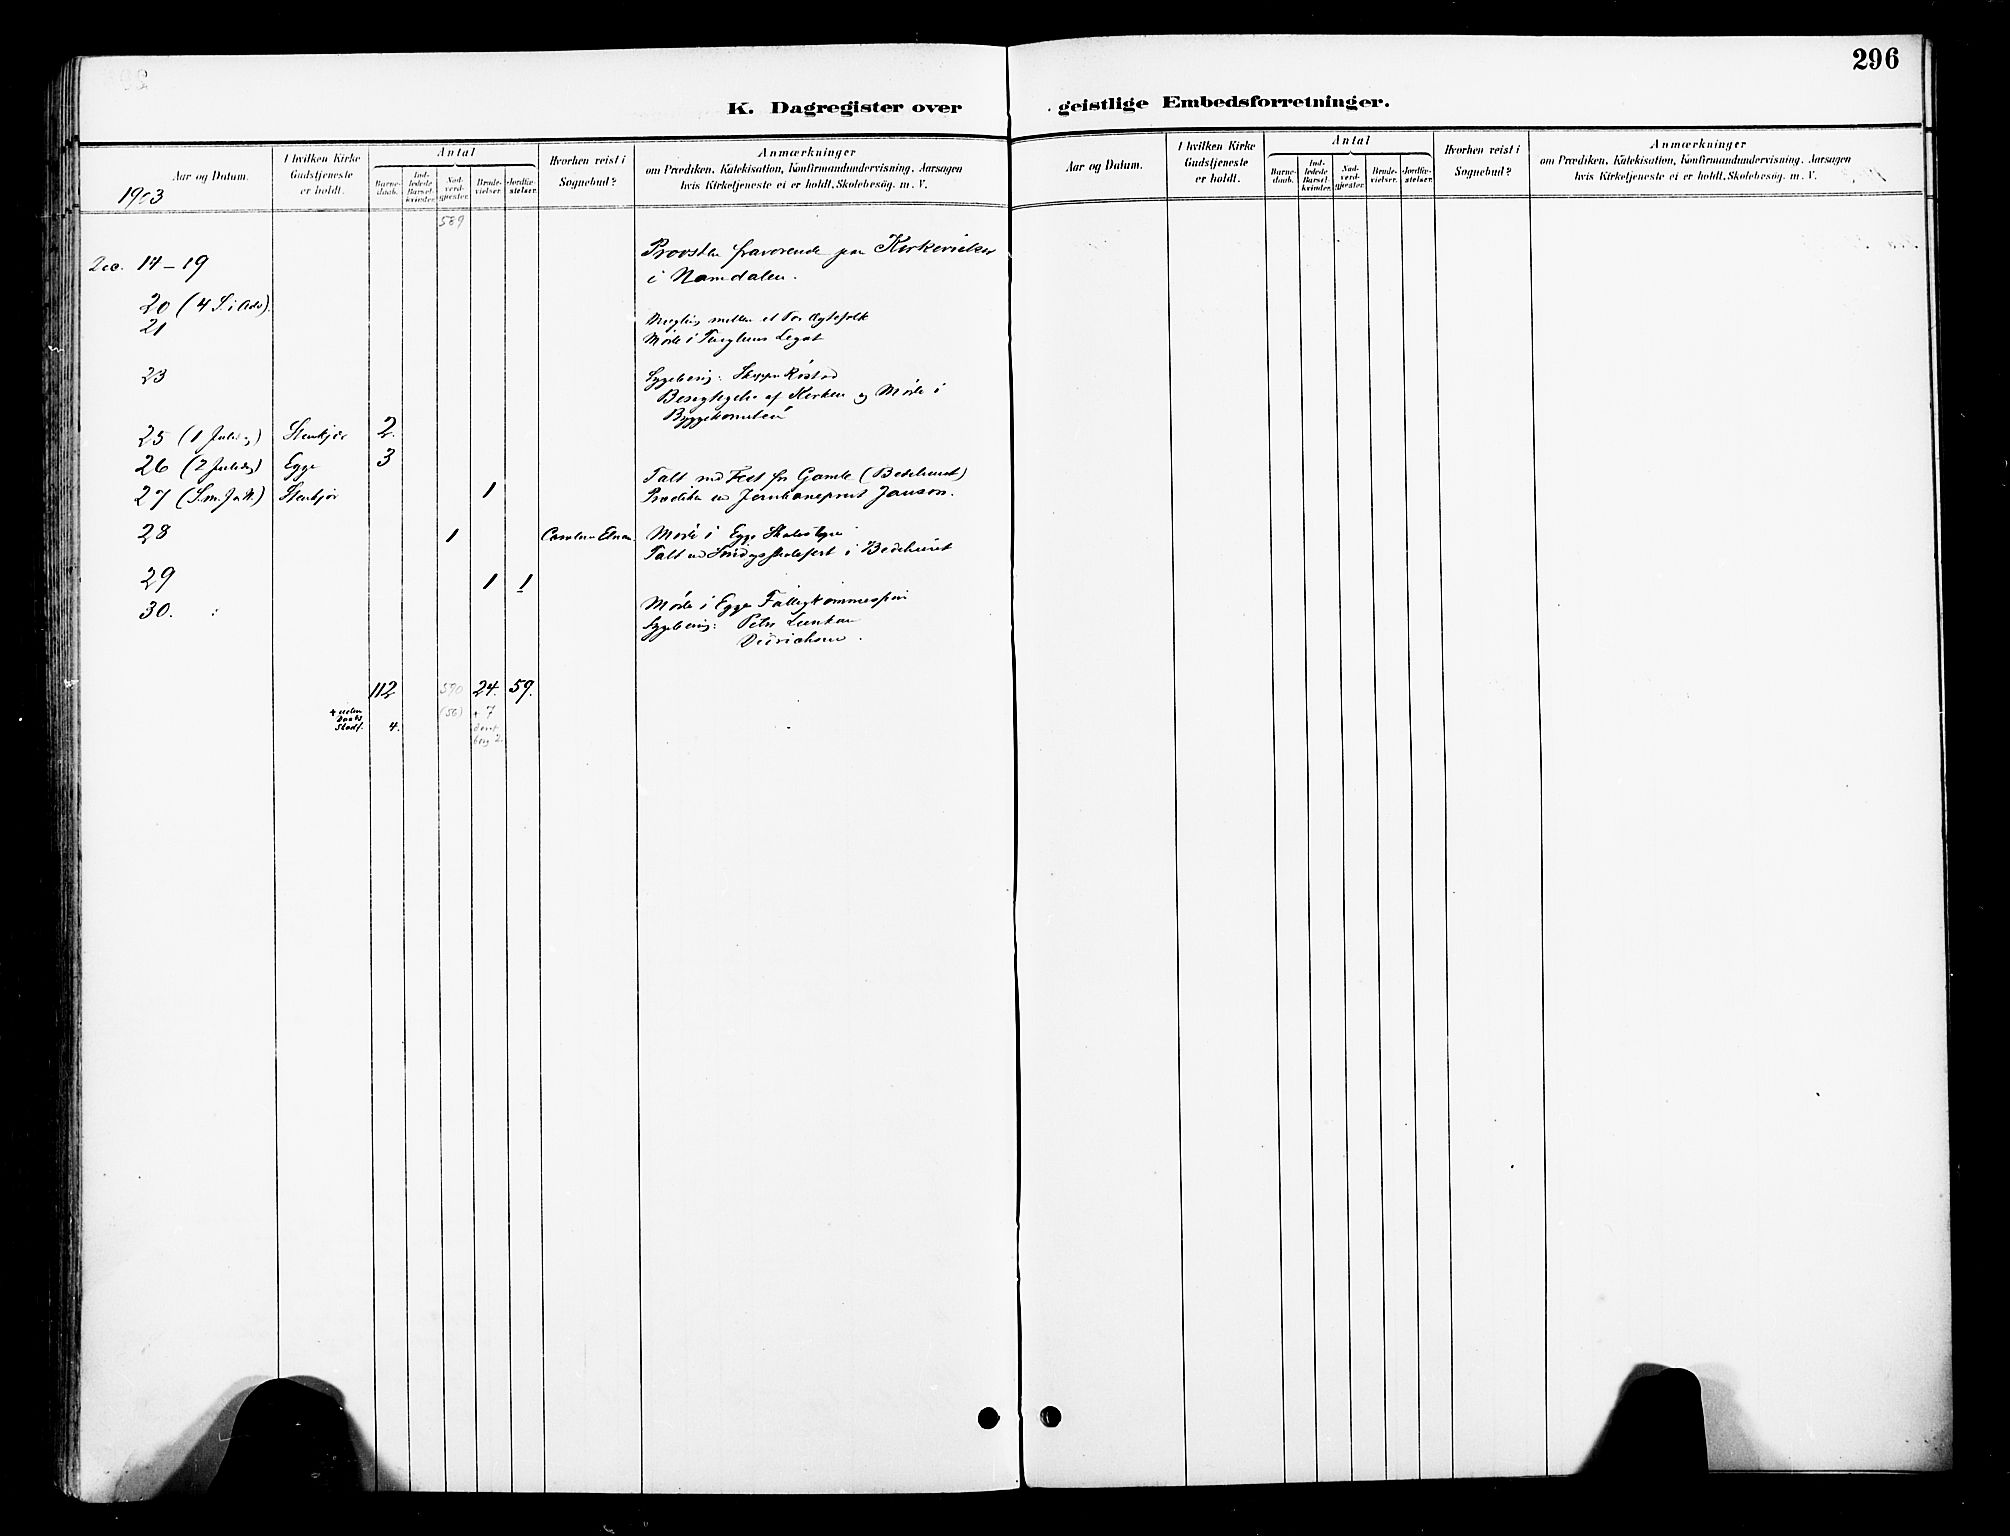 296
K. Dagregister over geistlige Embedsforretninger.
Aar og Datum.
I hvilken Kirke
Gudstjeneste
er holdt.
Antal
Barne-
daab.
Ind-
ledede
Barsel
kvinder.
Nad-
verd-
gjester.
Brude-
vielser.
Jordfæ-
stelser.
Hvorhen reist i
Sognebud?
Anmærkninger
om Prædiken, Katekisation, Konfirmandundervisning, Aarsagen
hvis Kirketjeneste ei er holdt, Skolebesög. m. V.
1903
589
Dec. 14-19 Provsten fraværende paa
i Namdalen.
20 (4 S. i Adv).
21 Mægling mellem et Par Ægtefolk
Møde i Legat
23 Sygeberetn.:
Besigtigelse af Kirken og Møde i
Byggekomiteen
25 (1 Juledag) Stenkjær 2.
26 (2 Juledag) Egge 3
Talt ved Fest for Gamle (Bedehuset)
27 (S. m. J. & N.) Stenkjær 1 Prædiken ved Jernbaneprest Janson.
28 1 Møde i Egge Skolestyre
Talt ved Søndagsskolefest i Bedehuset
29 1 1
30. Møde i Egge
Sygeberetn.: Petter
Didrichsen.
112 590 24. 59.
+ uden
Daabs
Stadf. 4. (56) + 7
Aar og Datum.
I hvilken Kirke
Gudstjeneste
er holdt.
Antal
Barne-
daab.
Ind-
ledede
Barsel
kvinder.
Nad-
verd-
gjester.
Brude-
vielser.
Jordfæ-
stelser.
Hvorhen reist i
Sognebud?
Anmærkninger
om Prædiken, Katekisation, Konfirmandundervisning, Aarsagen
hvis Kirketjeneste ei er holdt, Skolebesög. m. V.